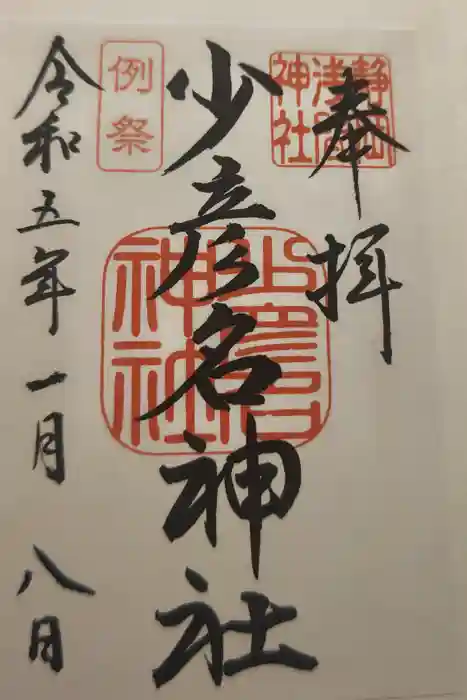 奉拝
静岡浅間神社
少彦名神社
少彦名神社
例祭
令和五年一月八日